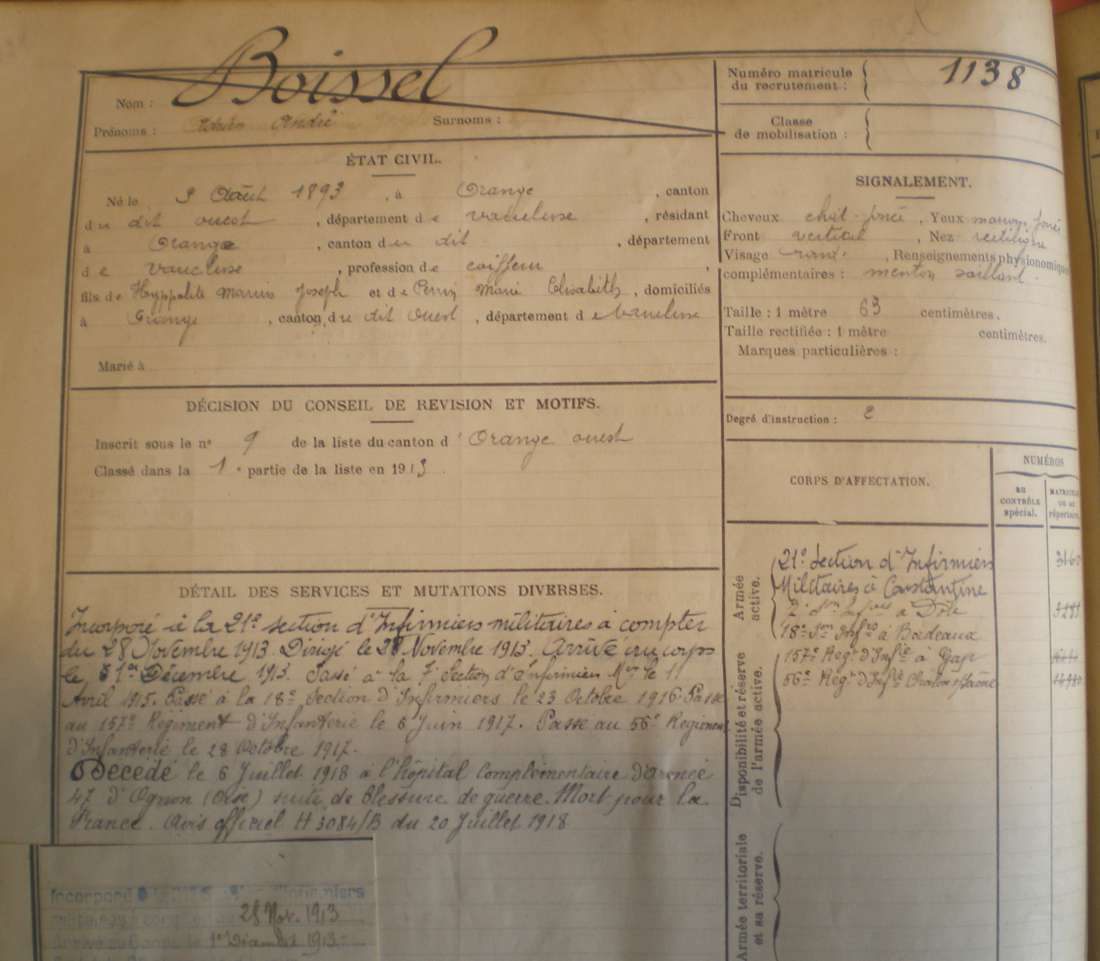 Nom : Boissel
Prénoms : Adrien André Surnoms :
Numéro matricule du recrutement : 1138
Classe de mobilisation :
ÉTAT CIVIL.
Né le 9 Août 1893, à Orange, canton
du dit ouest, département de Vaucluse, résidant
à Orange, canton du dit, département
de Vaucluse, profession de coiffeur,
fils de Hyppolite Marius Joseph et de Perrin Marie Elisabeth, domiciliés
à Orange, canton du dit Ouest, département de Vaucluse
Marié à
SIGNALEMENT.
Cheveux chat-foncé, Yeux marron foncé
Front vertical, Nez rectiligne
Visage rond, Renseignements physionomiques
complémentaires : menton saillant.
Taille : 1 mètre 63 centimètres.
Taille rectifiée : 1 mètre centimètres.
Marques particulières :
DÉCISION DU CONSEIL DE REVISION ET MOTIFS.
Inscrit sous le nº 9 de la liste du canton d'Orange ouest
Classé dans la 1e partie de la liste en 1913.
Degré d'instruction : 2
CORPS D'AFFECTATION.
NUMÉROS
au contrôle spécial.
MATRICULE ou au répertoire.
DÉTAIL DES SERVICES ET MUTATIONS DIVERSES.
Incorporé à la 21e section d'Infirmiers militaires à compter
du 28 Novembre 1913. Dirigé le 28 Novembre 1913. Arrivé au corps
le 1er Décembre 1913. Passé à la 7e Section d'Infirmiers Mres le 11
Avril 1915. Passé à la 18e Section d'Infirmiers le 23 Octobre 1916. Passé
au 157e Régiment d'Infanterie le 6 Juin 1917. Passé au 56e Régiment
d'Infanterie le 28 Octobre 1917.
Décédé le 6 Juillet 1918 à l'hôpital complémentaire d'armée
47 d'Ognon (Oise) suite de blessure de guerre. Mort pour la
France. Avis officiel H 3084/B du 20 Juillet 1918
Armée active.
21e Section d'Infirmiers 3160
Militaires à Constantine
à Dôle
18e Son Infres à Bordeaux
Disponibilité et réserve de l'armée active.
157e Régt d'Infie à Gap
56e Régt d'Infie Chalon s/Saône
Armée territoriale et sa réserve.
Incorporé Infirmiers
militaires à compter du 28 Nov. 1913
Arrivé au Corps le 1er Décembre 1913